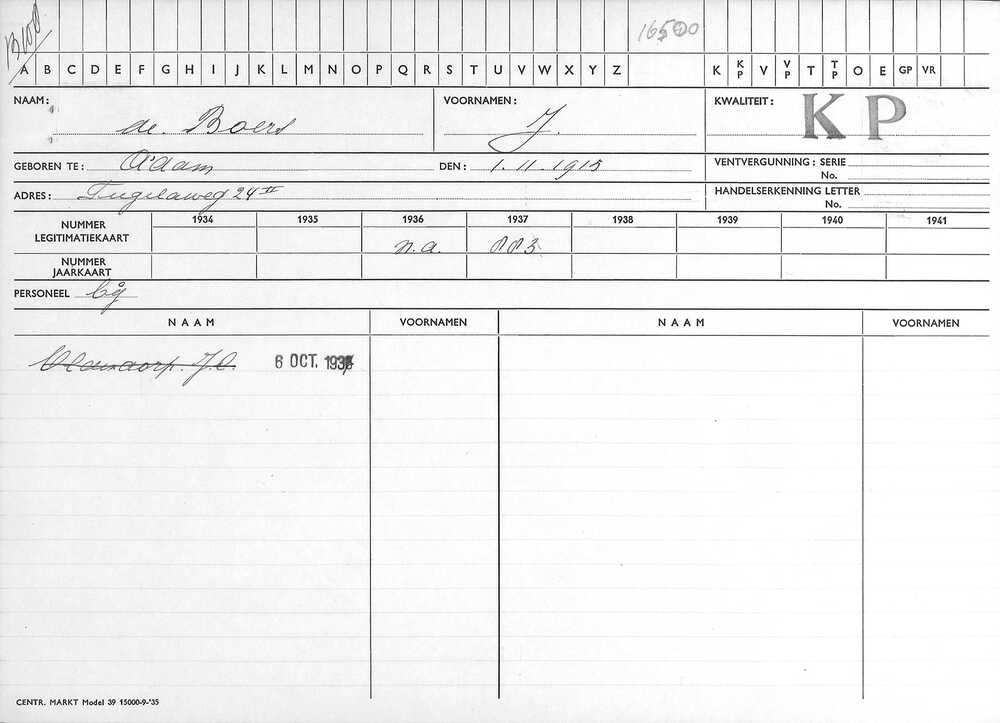 B100 16500
A B C D E F G H I J K L M N O P Q R S T U V W X Y Z K KP V VP T TP O E GP VR
NAAM: de. Boers VOORNAMEN: J. KWALITEIT: KP
GEBOREN TE: A'dam DEN: 1.11.1915 VENTVERGUNNING: SERIE
No.
ADRES: Tugelaweg 24 II HANDELSERKENNING LETTER
No.
1934 1935 1936 1937 1938 1939 1940 1941
NUMMER LEGITIMATIEKAART n.a.
NUMMER JAARKAART
PERSONEEL
NAAM VOORNAMEN NAAM VOORNAMEN
6 OCT. 193
CENTR. MARKT Model 39 15000-9-'35